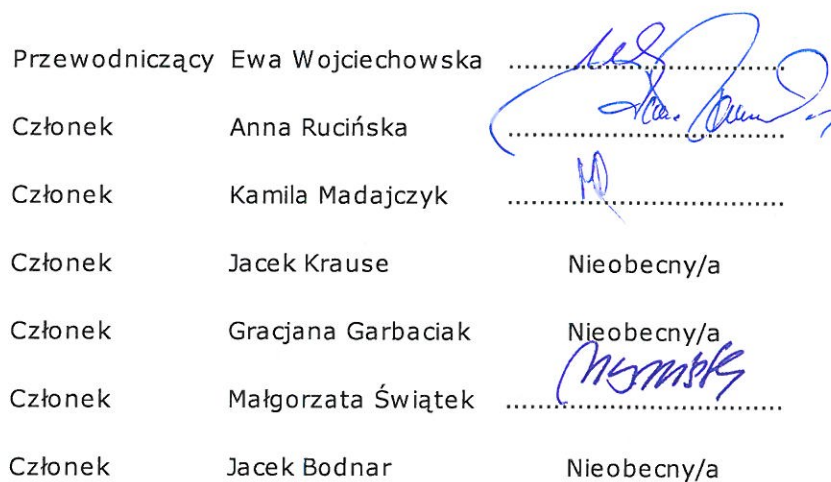 Przewodniczący Ewa Wojciechowska ....................................
Członek Anna Rucińska ....................................
Członek Kamila Madajczyk ....................................
Członek Jacek Krause Nieobecny/a
Członek Gracjana Garbaciak Nieobecny/a
Członek Małgorzata Świątek ....................................
Członek Jacek Bodnar Nieobecny/a